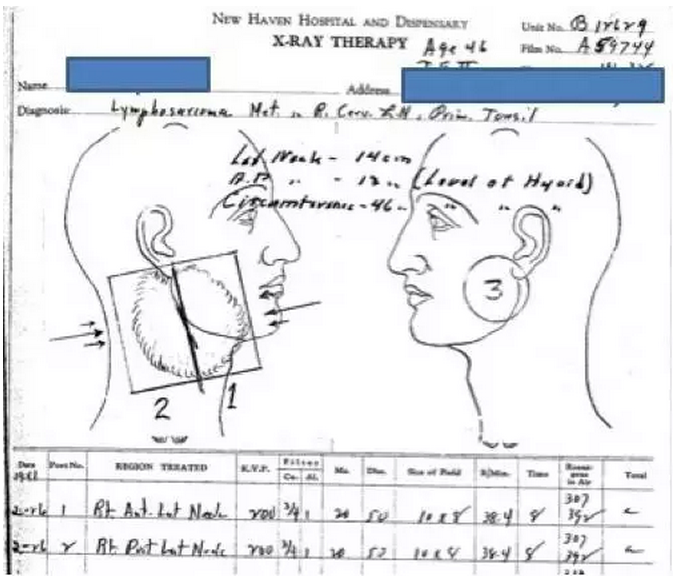 NEW HAVEN HOSPITAL AND DISPENSARY
X-RAY THERAPY
Unit No. B 12629
Age 46
Film No. A 59744
Name
Address
Diagnosis: Lymphosarcoma Met. R. Cerv. L.N. Prim. Tonsil
Lat Neck - 14 cm
A.P. " - 12 " (Level of Hyoid)
Circumference - 46 " " "
3
2 1
Date Port No. REGION TREATED K.V.P. Filter Ma. Dis. Size of Field R/Min. Time Roentgens in Air Total
Cu. Al.
307
2-26 1 Rt. Ant. Lat Neck 200 3/4 1 20 50 10 x 8 38.4 8' 392
307
2-26 2 Rt. Post Lat Neck 200 3/4 1 20 50 10 x 8 38.4 8' 392